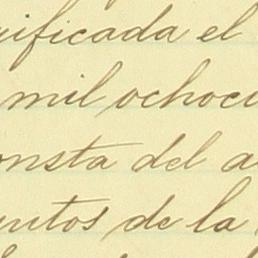 ificada el
mil ochoci
onsta del a
ntos de la